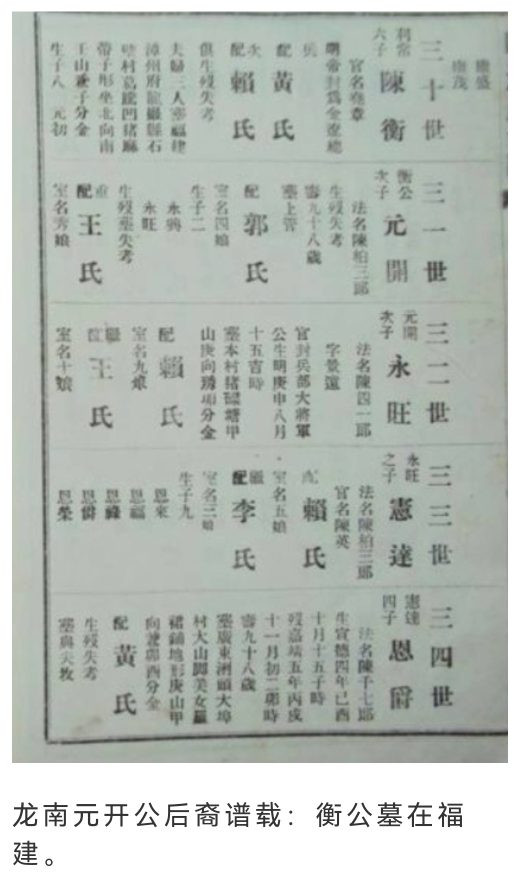 應盛
應茂
三十世
利常
六子
陳衡
官名堯章
明帝封爲金遼總
兵
配
黃氏
次
配
賴氏
俱生歿失考
夫婦三人塟福建
漳州府龍巖縣石
村葛龍凹猪麻
帶子形坐北向南
壬山兼子分金
生子八 元初
三一世
衡公
次子
元開
法名陳柏三郎
生歿失考
壽九十八歲
塟上管
配
郭氏
室名四娘
生子二
永興
永旺
生歿塟失考
重
配
王氏
室名秀娘
三二世
元開
次子
永旺
法名陳四一郎
字景遠
官封兵部大將軍
公生明庚申八月
十五吉時
塟本村猪磜塘甲
山庚向勝項分金
配
賴氏
室名九娘
繼
王氏
室名十娘
三三世
永旺
之子
憲達
法名陳柏三郎
官名陳英
配
賴氏
室名五娘
繼
配
李氏
室名三娘
生子九
恩來
恩福
恩祿
恩爵
恩榮
三四世
憲達
四子
恩爵
法名陳千七郎
生宣德四年己酉
十月十五子時
歿嘉靖五年丙戌
十一月初二卯時
壽九十八歲
塟廣東洲頭大埠
村大山脚美女羅
裙鋪地形庚山甲
向兼卯酉分金
配
黃氏
生歿失考
塟與夫牧
龙南元开公后裔谱载：衡公墓在福
建。